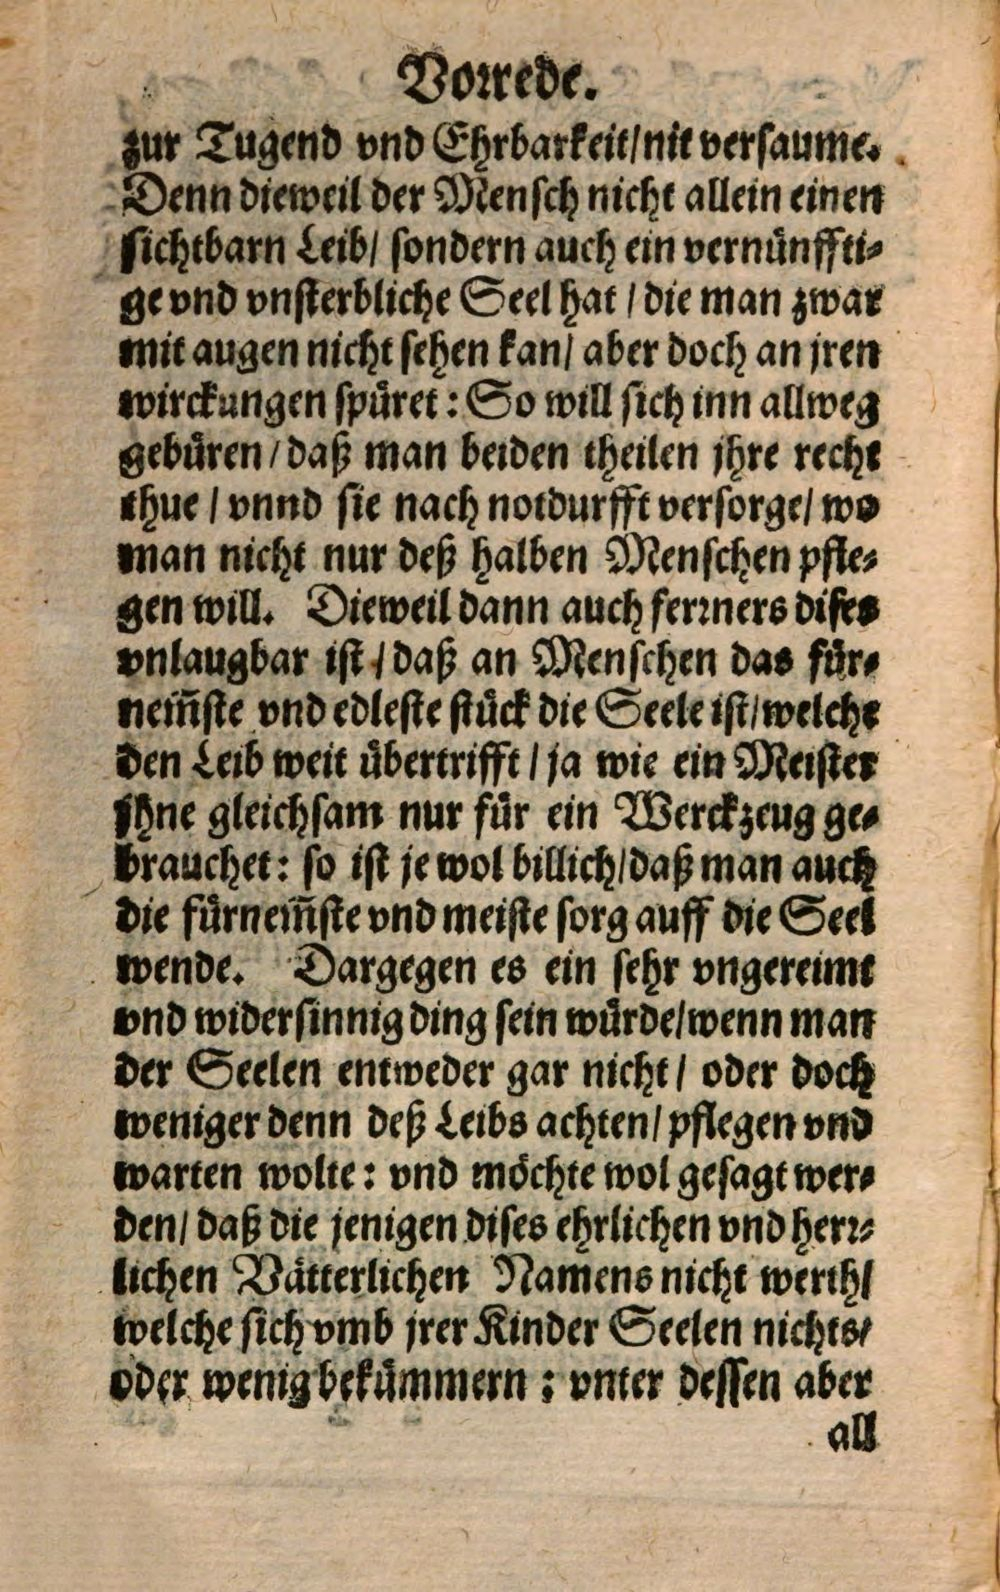 Vorrede.
zur Tugend vnd Ehrbarkeit/nit versaume.
Denn dieweil der Mensch nicht allein einen
sichtbarn Leib/ sondern auch ein vernünffti-
ge vnd vnsterbliche Seel hat / die man zwar
mit augen nicht sehen kan/ aber doch an jren
wirckungen spüret: So will sich inn allweg
gebüren / daß man beiden theilen jhre recht
thue / vnnd sie nach notdurfft versorge/ wo
man nicht nur deß halben Menschen pfle-
gen will. Dieweil dann auch ferrners dises
vnlaugbar ist / daß an Menschen das für-
nem̃ste vnd edleste stück die Seele ist/welche
den Leib weit übertrifft / ja wie ein Meister
jhne gleichsam nur für ein Werckzeug ge-
brauchet: so ist je wol billich/daß man auch
die fürnem̃ste vnd meiste sorg auff die Seel
wende. Dargegen es ein sehr vngereimt
vnd widersinnig ding sein würde/wenn man
der Seelen entweder gar nicht / oder doch
weniger denn deß Leibs achten/ pflegen vnd
warten wolte: vnd möchte wol gesagt wer-
den/ daß die jenigen dises ehrlichen vnd herr-
lichen Vätterlichen Namens nicht werth/
welche sich vmb jrer Kinder Seelen nichts/
oder wenig bekümmern : vnter dessen aber
all